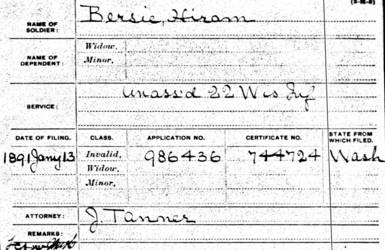 (3-M-8)
NAME OF SOLDIER: Bersie, Hiram
NAME OF DEPENDENT: Widow,
Minor,
SERVICE: Unass'd 22 Wis Inf
DATE OF FILING. CLASS. APPLICATION NO. CERTIFICATE NO. STATE FROM WHICH FILED.
1891 Jany 13 Invalid, 986436 744724 Wash
Widow,
Minor,
ATTORNEY: J. Tanner
REMARKS: